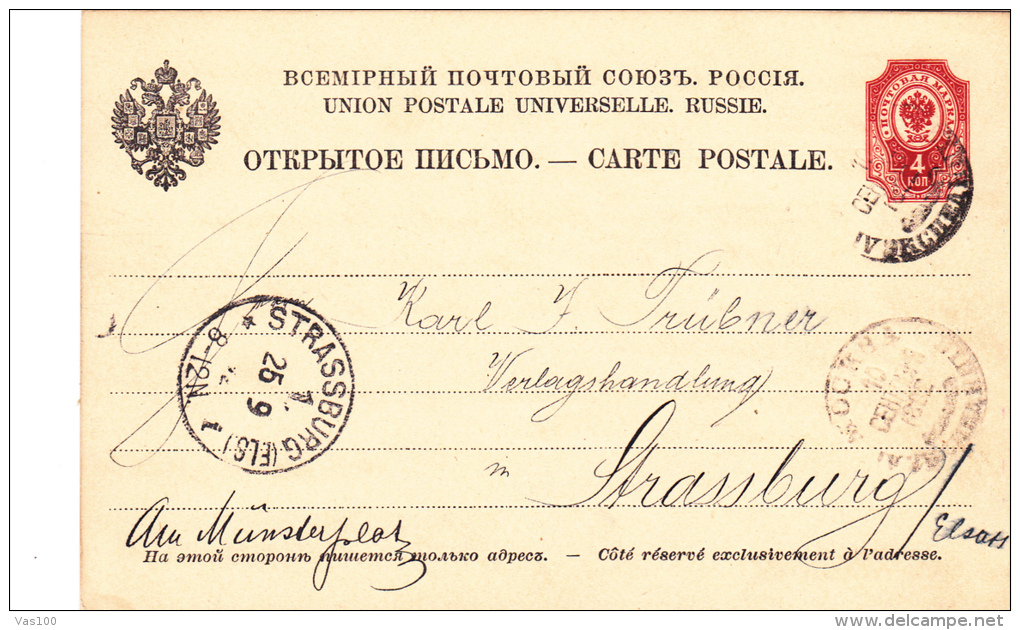 ВСЕМІРНЫЙ ПОЧТОВЫЙ СОЮЗЪ. РОССІЯ.
UNION POSTALE UNIVERSELLE. RUSSIE.
ОТКРЫТОЕ ПИСЬМО. — CARTE POSTALE.
ПОЧТОВАЯ МАРКА
4
КОП
Karl J. Trübner
Verlagshandlung
in
Strassburg/
Elsass
Am Münsterplatz
STRASSBURG (ELS.) 1
8-12N
25 9
МОСКВА
На этой сторонѣ пишется только адресъ. — Côté réservé exclusivement à l'adresse.
Vas100
delcampe.net